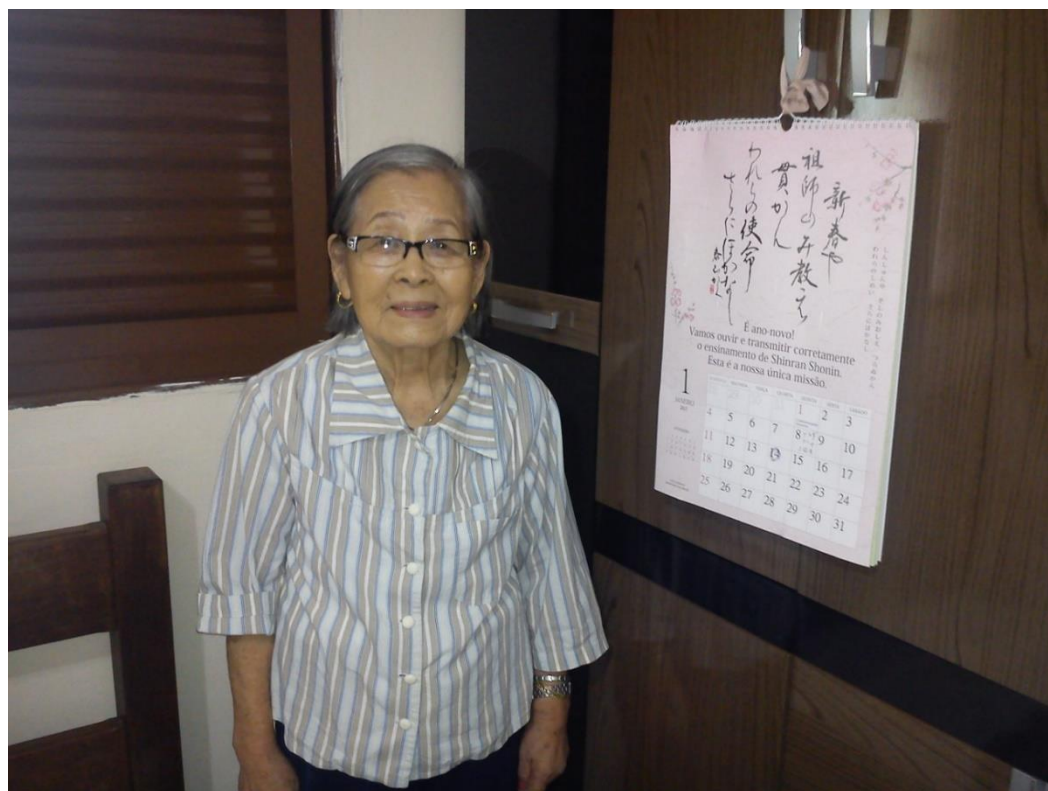 新春や
祖師のみ教え
貫かん
われらの使命
さらにほかなし
É ano-novo!
Vamos ouvir e transmitir corretamente
o ensinamento de Shinran Shonin.
Esta é a nossa única missão.
1
JANEIRO
1 2 3
4 5 6 7 8 9 10
11 12 13 14 15 16 17
18 19 20 21 22 23 24
25 26 27 28 29 30 31